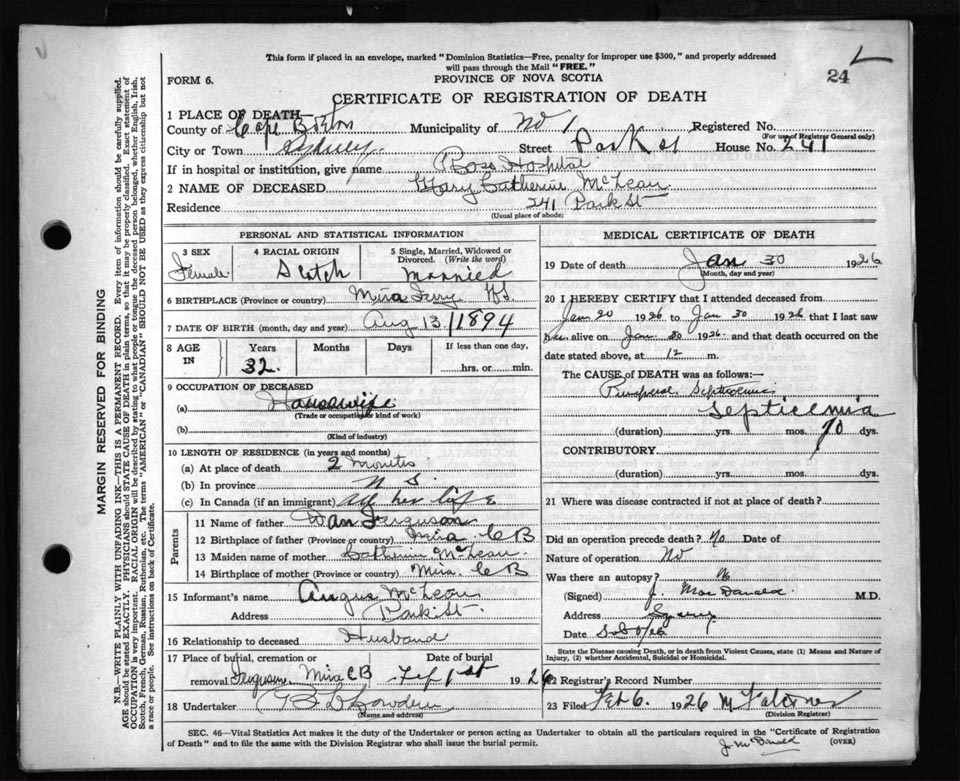 This form if placed in an envelope, marked "Dominion Statistics—Free, penalty for improper use $300," and properly addressed
will pass through the Mail "FREE."
24
FORM 6.
PROVINCE OF NOVA SCOTIA
CERTIFICATE OF REGISTRATION OF DEATH
1 PLACE OF DEATH—
County of Cape Breton Municipality of No 1 Registered No.
(For use of Registrar General only)
City or Town Sydney Street Park St House No. 241
If in hospital or institution, give name Ross Hospital
2 NAME OF DECEASED Mary Catherine McLean
Residence 241 Park St
(Usual place of abode)
PERSONAL AND STATISTICAL INFORMATION
3 SEX Female
4 RACIAL ORIGIN Scotch
5 Single, Married, Widowed or Divorced. (Write the word) Married
6 BIRTHPLACE (Province or country) Mira Ferry NS
7 DATE OF BIRTH (month, day and year) Aug 13/1894
8 AGE IN Years 32 Months Days If less than one day, hrs. or min.
9 OCCUPATION OF DECEASED
(a) Housewife
(Trade or occupation or kind of work)
(b)
(Kind of industry)
10 LENGTH OF RESIDENCE (in years and months)
(a) At place of death 2 Months
(b) In province N S.
(c) In Canada (if an immigrant) All her life
Parents
11 Name of father Dan Ferguson
12 Birthplace of father (Province or country) Mira CB
13 Maiden name of mother Catherine McLean
14 Birthplace of mother (Province or country) Mira. CB
15 Informant's name Angus McLean
Address Park St.
16 Relationship to deceased Husband
17 Place of burial, cremation or removal Ferguson, Mira CB Date of burial Feb 1st 1926
18 Undertaker
(Name and address)
MEDICAL CERTIFICATE OF DEATH
19 Date of death Jan 30 1926
(Month, day and year)
20 I HEREBY CERTIFY that I attended deceased from
Jan 20 1926 to Jan 30 1926 that I last saw
her alive on Jan 30 1926. and that death occurred on the
date stated above, at 12 m.
The CAUSE OF DEATH was as follows:
Puerperal Septicemia
Septicemia
(duration) yrs. mos. 10 dys.
CONTRIBUTORY
(duration) yrs. mos. dys.
21 Where was disease contracted if not at place of death?
Did an operation precede death? No Date of
Nature of operation No
Was there an autopsy? No
(Signed) J. MacDonald M.D.
Address Sydney
Date
State the Disease causing Death, or in death from Violent Causes, state (1) Means and Nature of
Injury, (2) whether Accidental, Suicidal or Homicidal.
22 Registrar's Record Number
23 Filed Feb 6. 1926
(Division Registrar)
SEC. 46—Vital Statistics Act makes it the duty of the Undertaker or person acting as Undertaker to obtain all the particulars required in the "Certificate of Registration
of Death" and to file the same with the Division Registrar who shall issue the burial permit.
(OVER)
MARGIN RESERVED FOR BINDING
N.B.—WRITE PLAINLY WITH UNFADING INK—THIS IS A PERMANENT RECORD. Every item of information should be carefully supplied.
AGE should be stated EXACTLY. PHYSICIANS should STATE CAUSE OF DEATH in plain terms, so that it may be properly classified. Exact statement of
OCCUPATION is very important. RACIAL ORIGIN will be described by stating to what people or tongue the deceased person belonged, whether English, Irish,
Scotch, French, German, Russian, Ruthenian, etc. The terms "AMERICAN" or "CANADIAN" SHOULD NOT BE USED as they express citizenship but not
a race or people. See instructions on back of Certificate.